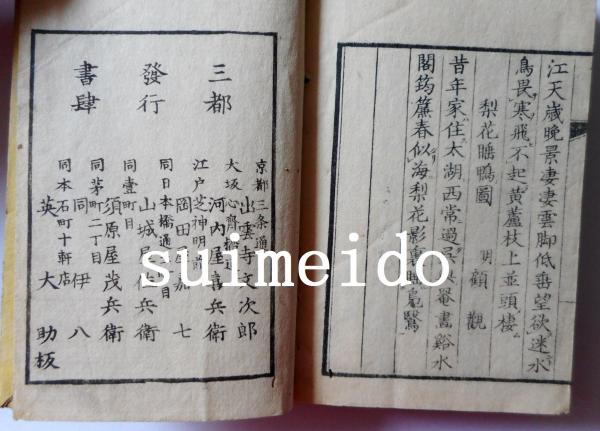 江天歲晩景凄凄雲脚低垂望欲迷水
鳥畏寒飛不起黄蘆枝上並頭棲
梨花睡鴨圖
明 顧觀
昔年家住太湖西常過吴興罨畫谿水
閣筠簾春似海梨花影裏睡鳧鷖
三都
發行
書肆
京都三条通
出雲寺文次郎
大坂心齋橋
河内屋喜兵衛
江戸芝神明
岡田屋嘉七
同日本橋通 目
山城屋佐兵衛
同壹町目
須原屋茂兵衛
同茅町二丁目
同 伊八
同本石町十軒店
英大助板
suimeido